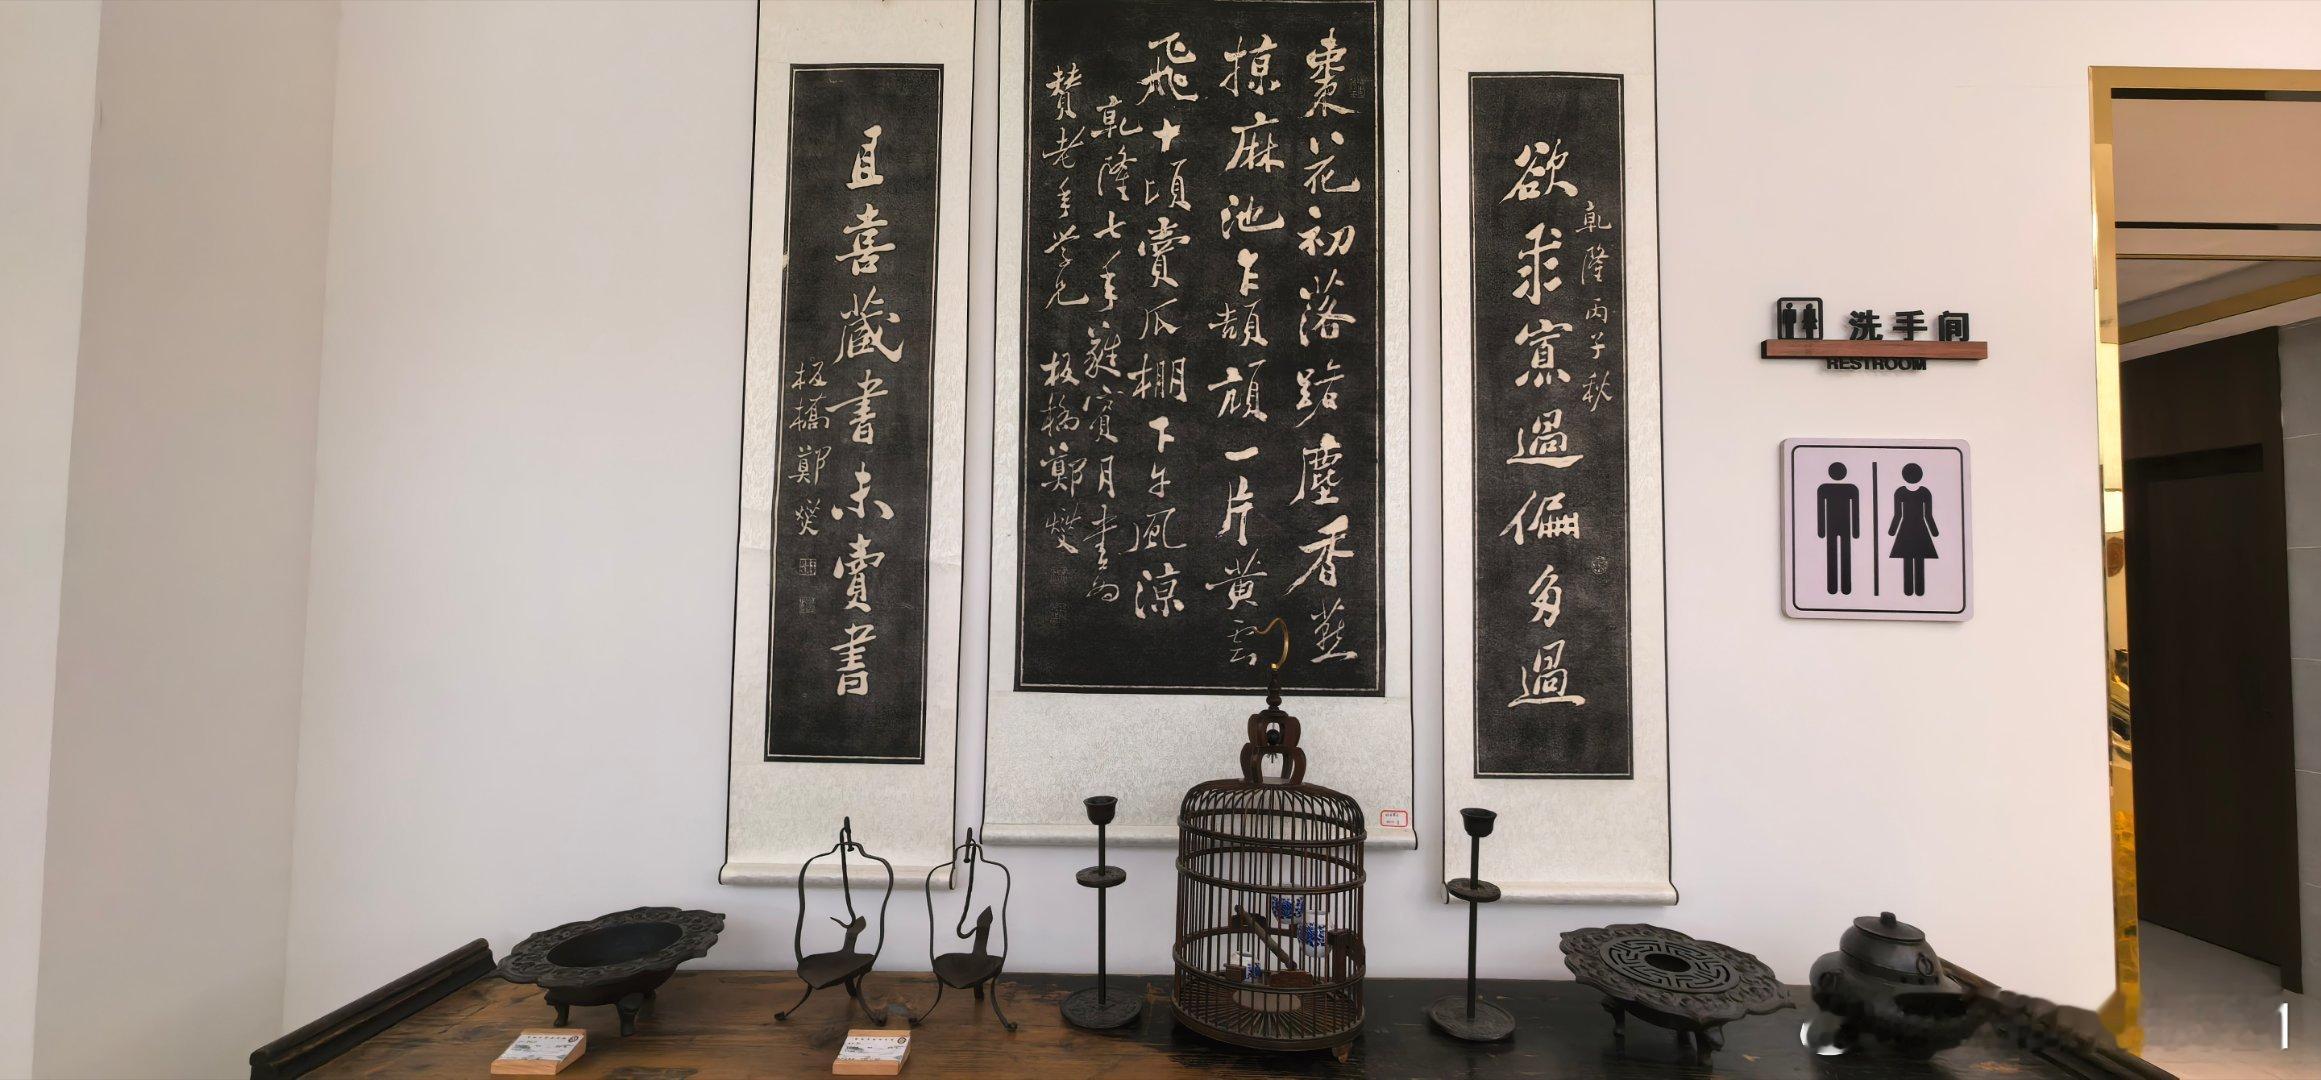 乾隆丙子秋
欲求寡過偏多過
棗花初落路塵香燕
掠麻池乍頡頏一片黃雲
飛十頃賣瓜棚下午風涼
乾隆七年蕤賓月書為
贊老年學兄 板橋鄭燮
且喜藏書未賣書
板橋鄭燮
洗手间
RESTROOM